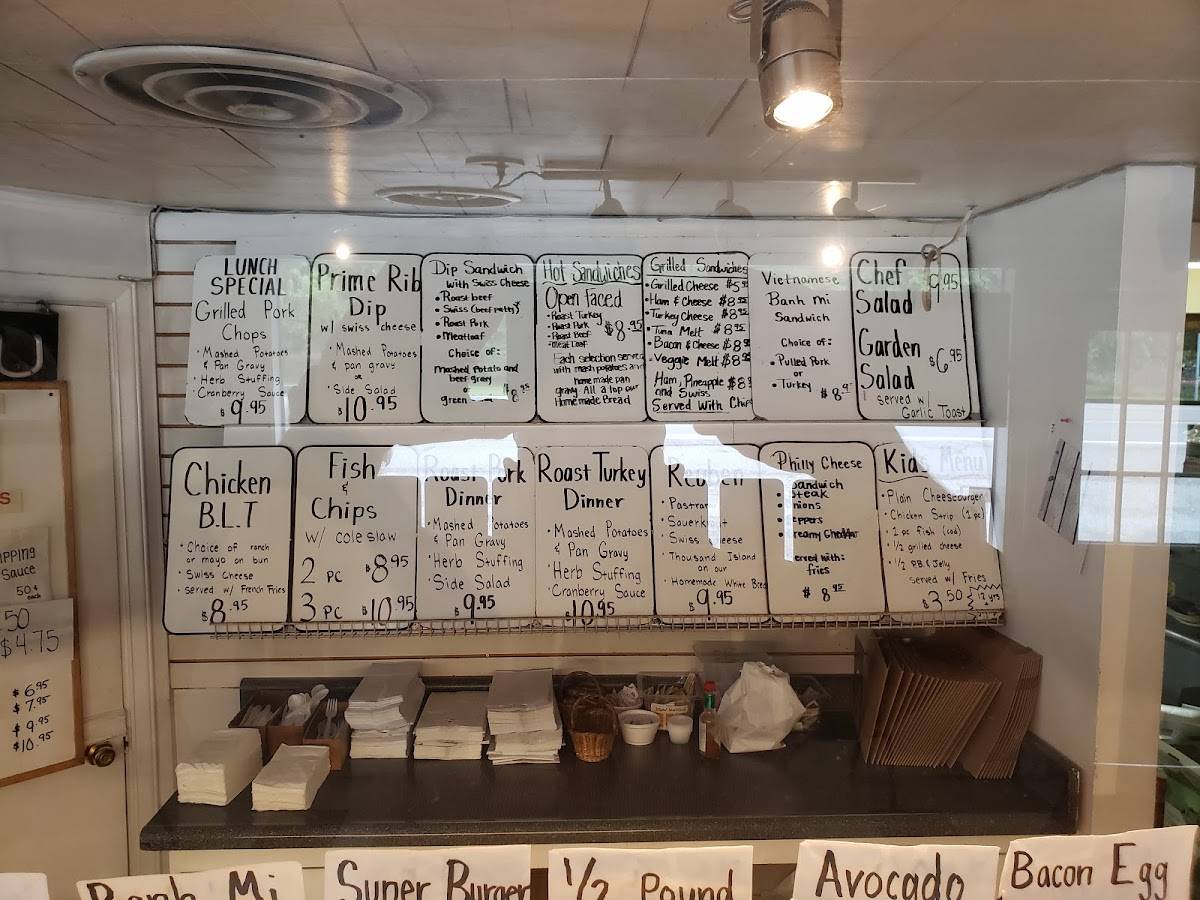 LUNCH
SPECIAL
Grilled Pork
Chops
• Mashed Potatoes
& Pan Gravy
• Herb Stuffing
• Cranberry Sauce
$9.95
Prime Rib
Dip
w/ swiss cheese
• Mashed Potatoes
& pan gravy
or
• Side Salad
$10.95
Dip Sandwich
with Swiss Cheese
• Roast beef
• Swiss (beef patty)
• Roast Pork
• Meatloaf
Choice of:
Mashed Potato and
beef gravy
or
green
Hot Sandwiches
Open Faced
• Roast Turkey
• Roast Pork
• Roast Beef
• Meat Loaf
$8.95
Each selection served
with mash potatoes and
homemade pan
gravy All a top our
Homemade Bread
Grilled Sandwiches
• Grilled Cheese $5.95
• Ham & Cheese $8.95
• Turkey Cheese $8.95
• Tuna Melt $8.95
• Bacon & Cheese $8.95
• Veggie Melt $8.95
Ham, Pineapple $8
and Swiss
Served With Chips
Vietnamese
Banh mi
Sandwich
Choice of:
• Pulled Pork
or
• Turkey $8.95
Chef 9.95
Salad
Garden
Salad $6.95
served w/
Garlic Toast
Chicken
B.L.T
• Choice of ranch
or mayo on bun
• Swiss Cheese
• served w/ French Fries
$8.95
Fish
&
Chips
w/ coleslaw
2 pc $8.95
3 pc $10.95
Roast Pork
Dinner
• Mashed Potatoes
& Pan Gravy
• Herb Stuffing
• Side Salad
$9.95
Roast Turkey
Dinner
• Mashed Potatoes
& Pan Gravy
• Herb Stuffing
• Cranberry Sauce
$10.95
Reuben
• Pastrami
• Sauerkraut
• Swiss Cheese
• Thousand Island
on our
• Homemade White Bread
$9.95
Philly Cheese
Sandwich
• Steak
• Onions
• Peppers
• Creamy Cheddar
served with:
fries
$8.95
Kids Menu
• Plain Cheeseburger
• Chicken Strip (1 pc)
• 1 pc fish (cod)
• 1/2 grilled cheese
• 1/2 P.B & Jelly
served w/ Fries
$3.50
12 yrs
S
pping
Sauce
50¢
each
50
$4.75
$6.95
$7.95
$9.95
$10.95
Banh Mi
Super Burger
1/2 Pound
Avocado
Bacon Egg